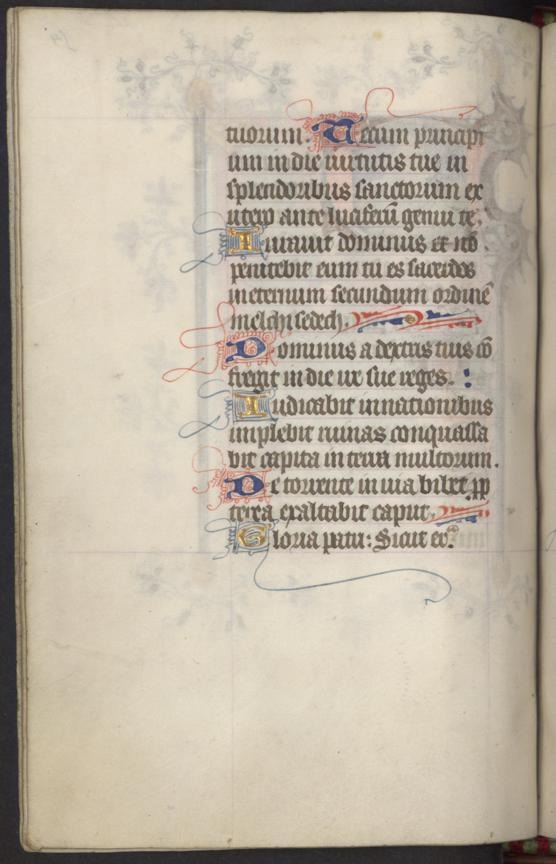 tuorum. Tecum principi
um in die uirtutis tue in
splendoribus sanctorum ex
utero ante luciferū genui te.
Iurauit dominus et nō
penitebit eum tu es sacerdos
in eternum secundum ordinē
melchisedech.
Dominus a dextris tuis cō
fregit in die ire sue reges.
Iudicabit in nationibus
implebit ruinas conquassa
bit capita in terra multorum.
De torrente in uia bibet pp
terea exaltabit caput.
Gloria patri: Sicut er.